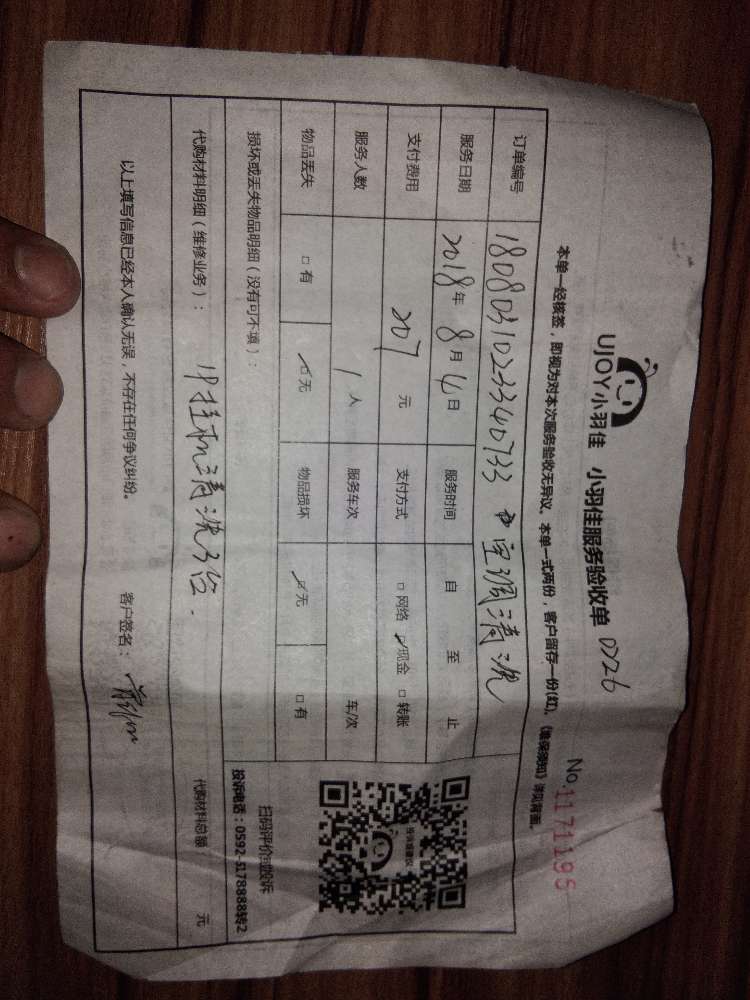 UJOY小羽佳 小羽佳服务验收单 0726
No.1171195
本单一经核签，即视为对本次服务验收无异议。本单一式两份，客户留存一份(红)。《维保须知》详见背面。
订单编号 1808031023340733 空调清洗
服务日期 2018年8月4日 服务时间 自 至 止
支付费用 207元 支付方式 □网络 ☑现金 □转账
服务人数 1人 服务车次 车/次
物品丢失 □有 ☑无 物品损坏 ☑无 □有
损坏或丢失物品明细（没有可不填）：
扫码评价或投诉
投诉电话：0592-5178888转2
代购材料明细（维修业务）： 1P挂机清洗3台. 代购材料总额： 元
以上填写信息已经本人确认无误，不存在任何争议纠纷。 客户签名：